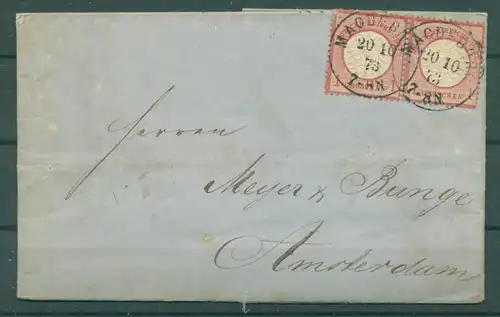 MAGDEB
20 10
73
7-8N.
MAGDEB
20 10
73
7-8N.
Herren
Meyer & Bunge
Amsterdam